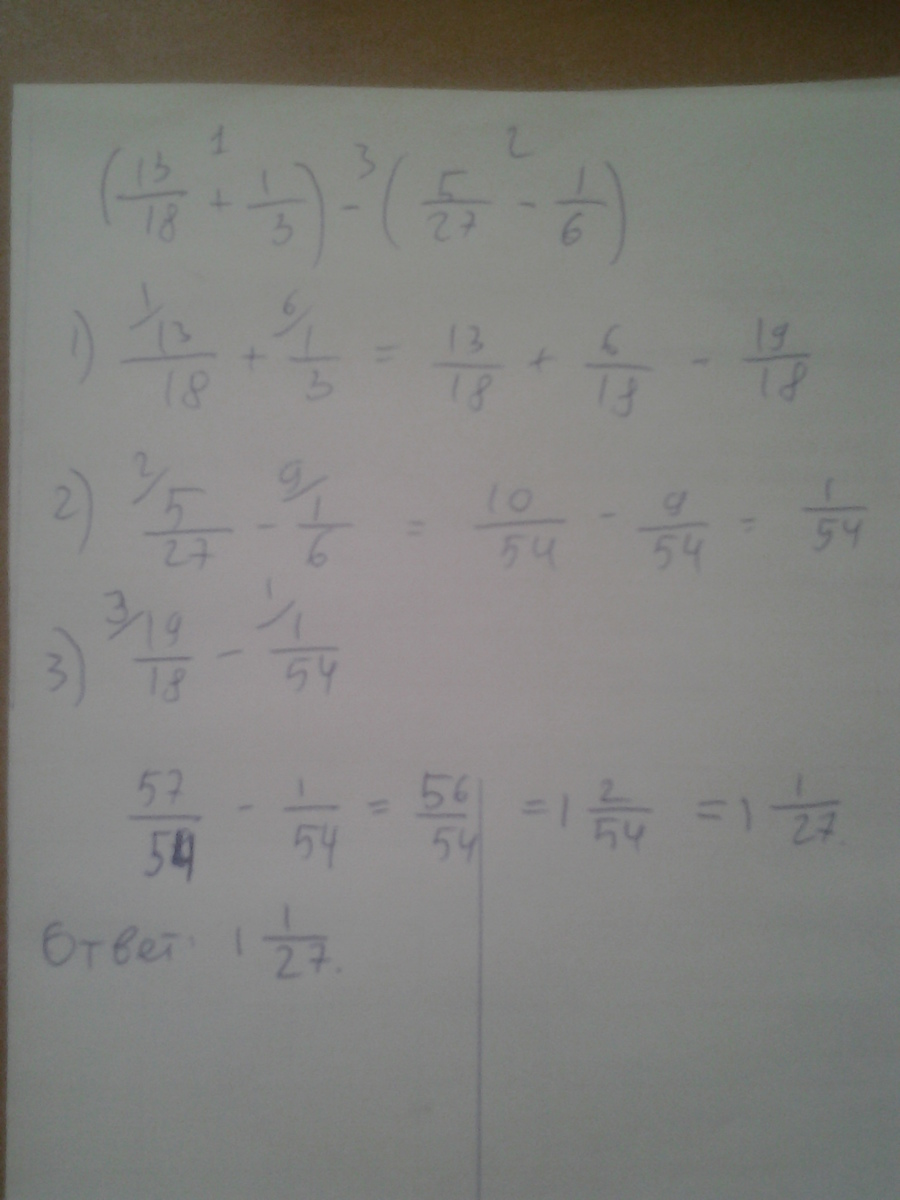 1 3 2
(13/18 + 1/3) - (5/27 - 1/6)
1) 1/ 13/18 + 6/ 1/3 = 13/18 + 6/18 - 19/18
2) 2/ 5/27 - 9/ 1/6 = 10/54 - 9/54 = 1/54
3) 3/ 19/18 - 1/ 1/54
57/54 - 1/54 = 56/54 = 1 2/54 = 1 1/27.
Ответ: 1 1/27.